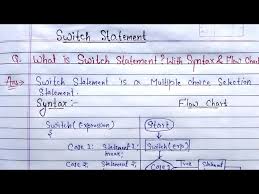 Switch Statement
Q. What is Switch Statement? With Syntax & Flow Chart
Ans:- Switch Statement is a Multiple choice Selection
Statement.
Syntax:- Flow Chart
Switch (expression) Start
{ Switch (exp)
Case 1: Statement 1;
break; Case 1 True
Case 2: